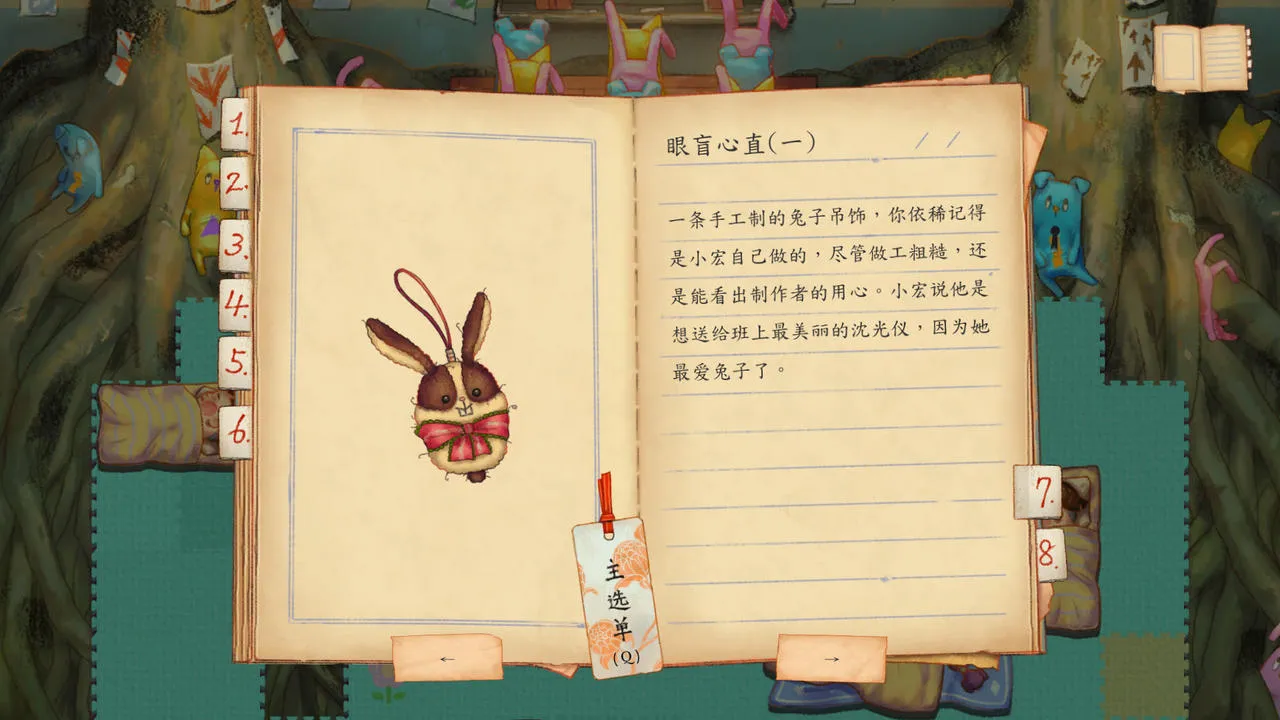 1.
2.
3.
4.
5.
6.
眼盲心直(一)
一条手工制的兔子吊饰，你依稀记得
是小宏自己做的，尽管做工粗糙，还
是能看出制作者的用心。小宏说他是
想送给班上最美丽的沈光仪，因为她
最爱兔子了。
7.
8.
主选单
(Q)
←
→